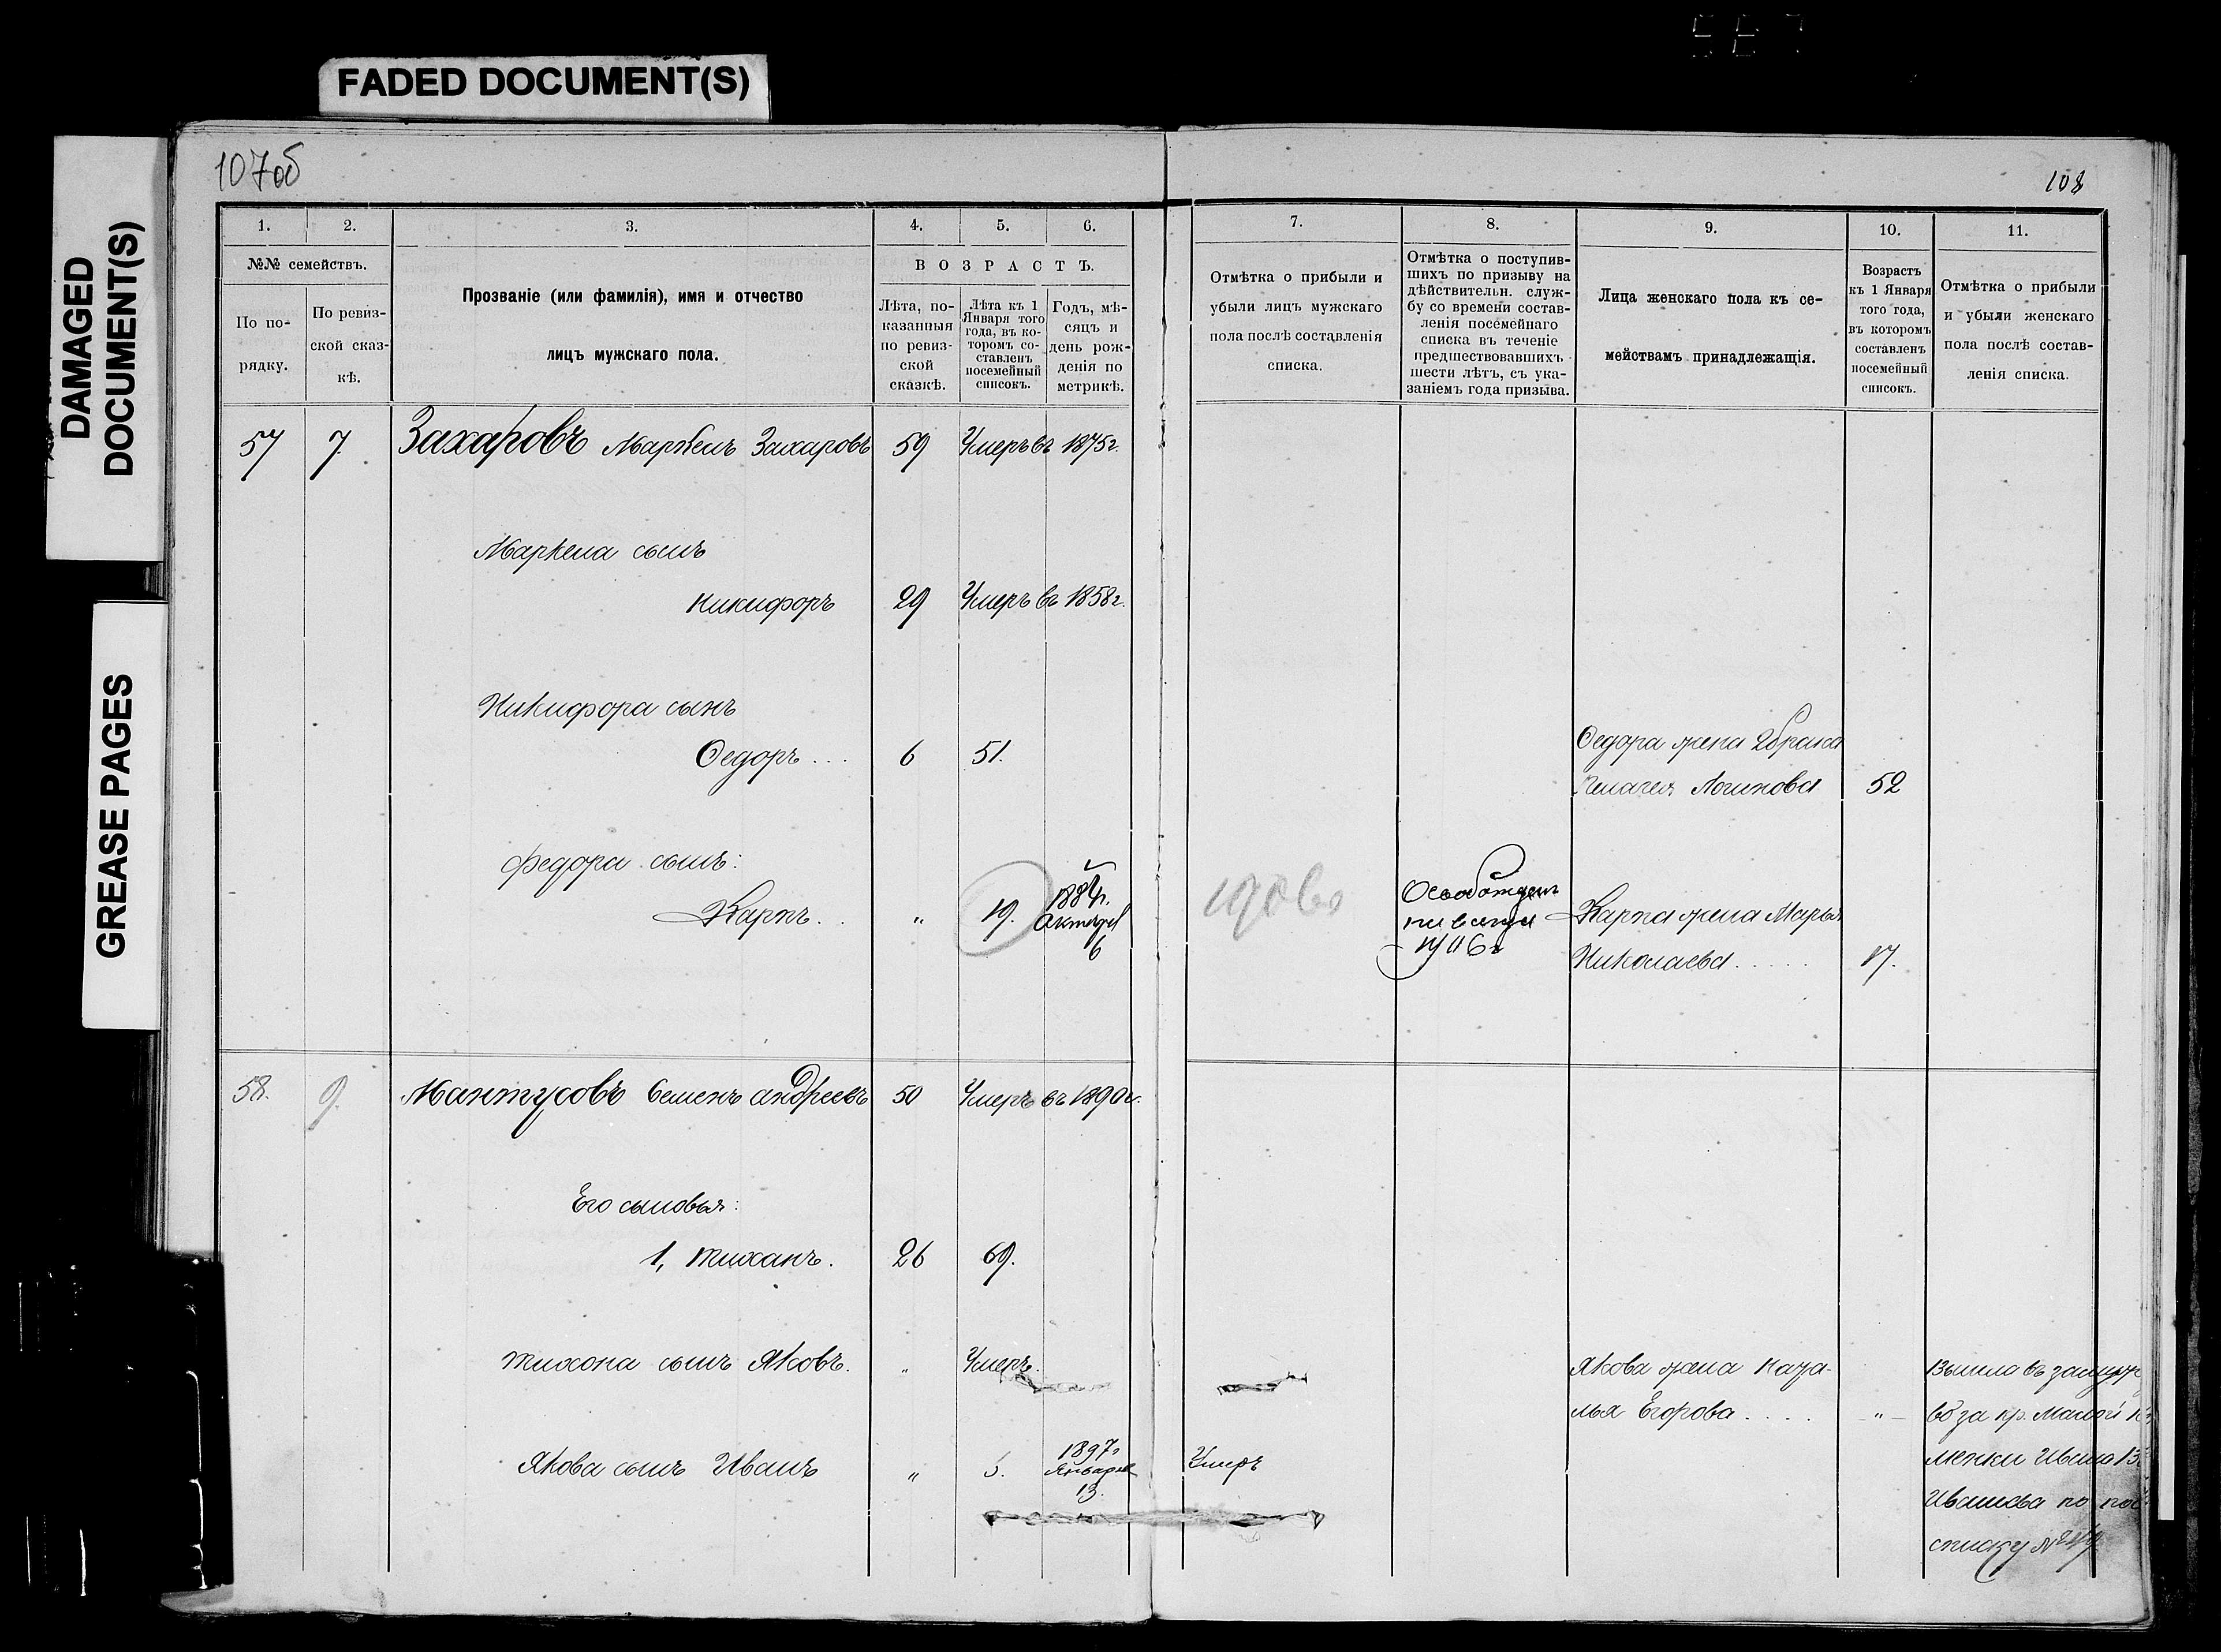 FADED DOCUMENT(S)
DAMAGED
DOCUMENT(S)
GREASE PAGES
107об
108
1.
2.
3.
4.
5.
6.
№№ семействъ.
По по-
рядку.
По ревиз-
ской сказ-
кѣ.
Прозваніе (или фамилія), имя и отчество
лицъ мужскаго пола.
ВОЗРАСТЪ.
Лѣта, по-
казанныя
по ревиз-
ской
сказкѣ.
Лѣта къ 1
Января того
года, въ ко-
торомъ со-
ставленъ
посемейный
списокъ.
Годъ, мѣ-
сяцъ и
день рож-
денія по
метрикѣ.
7.
8.
9.
10.
11.
Отмѣтка о прибыли и
убыли лицъ мужскаго
пола послѣ составленія
списка.
Отмѣтка о поступив-
шихъ по призыву на
дѣйствительн. служ-
бу со времени состав-
ленія посемейнаго
списка въ теченіе
предшествовавшихъ
шести лѣтъ, съ ука-
заніемъ года призыва.
Лица женскаго пола къ се-
мействамъ принадлежащія.
Возрастъ
къ 1 Января
того года,
въ которомъ
составленъ
посемейный
списокъ.
Отмѣтка о прибыли
и убыли женскаго
пола послѣ состав-
ленія списка.
57 7. Захаровъ Маркелъ Захаровъ 59 Умеръ въ 1875г.
Маркела сынъ
Никифоръ 29 Умеръ въ 1858г.
Никифора сынъ
Ѳедоръ... 6 51.
Ѳедора жена 2 брака
Пелагея Логинова 52
Федора сынъ:
Карпъ.. „ 19.
Октября
6
Освобожденъ
навсегда
1906г
Карпа жена Марья
Николаева..... 17.
58. 9. Мантусовъ Семенъ Андреевъ 50 Умеръ въ 1890г.
Его сыновья:
1, Тихонъ. 26 69.
Тихона сынъ Яковъ. „ Умеръ.
Якова жена Ната-
лья Егорова.... „
Вышла въ замуж
во за кр. Малой
менки Ивана
Иванова по
списку №
Якова сынъ Иванъ „ 5. 1897г
Января
13.
Умеръ